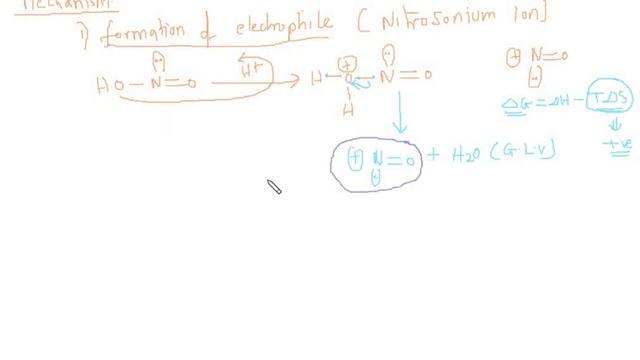 Mechanism
1) formation of electrophile [Nitrosonium ion]
HO-N=O H+ H-O-N=O ⊕ N=O
H
ΔG = ΔH - TΔS
⊕ N=O + H2O (G.L.V) +ve